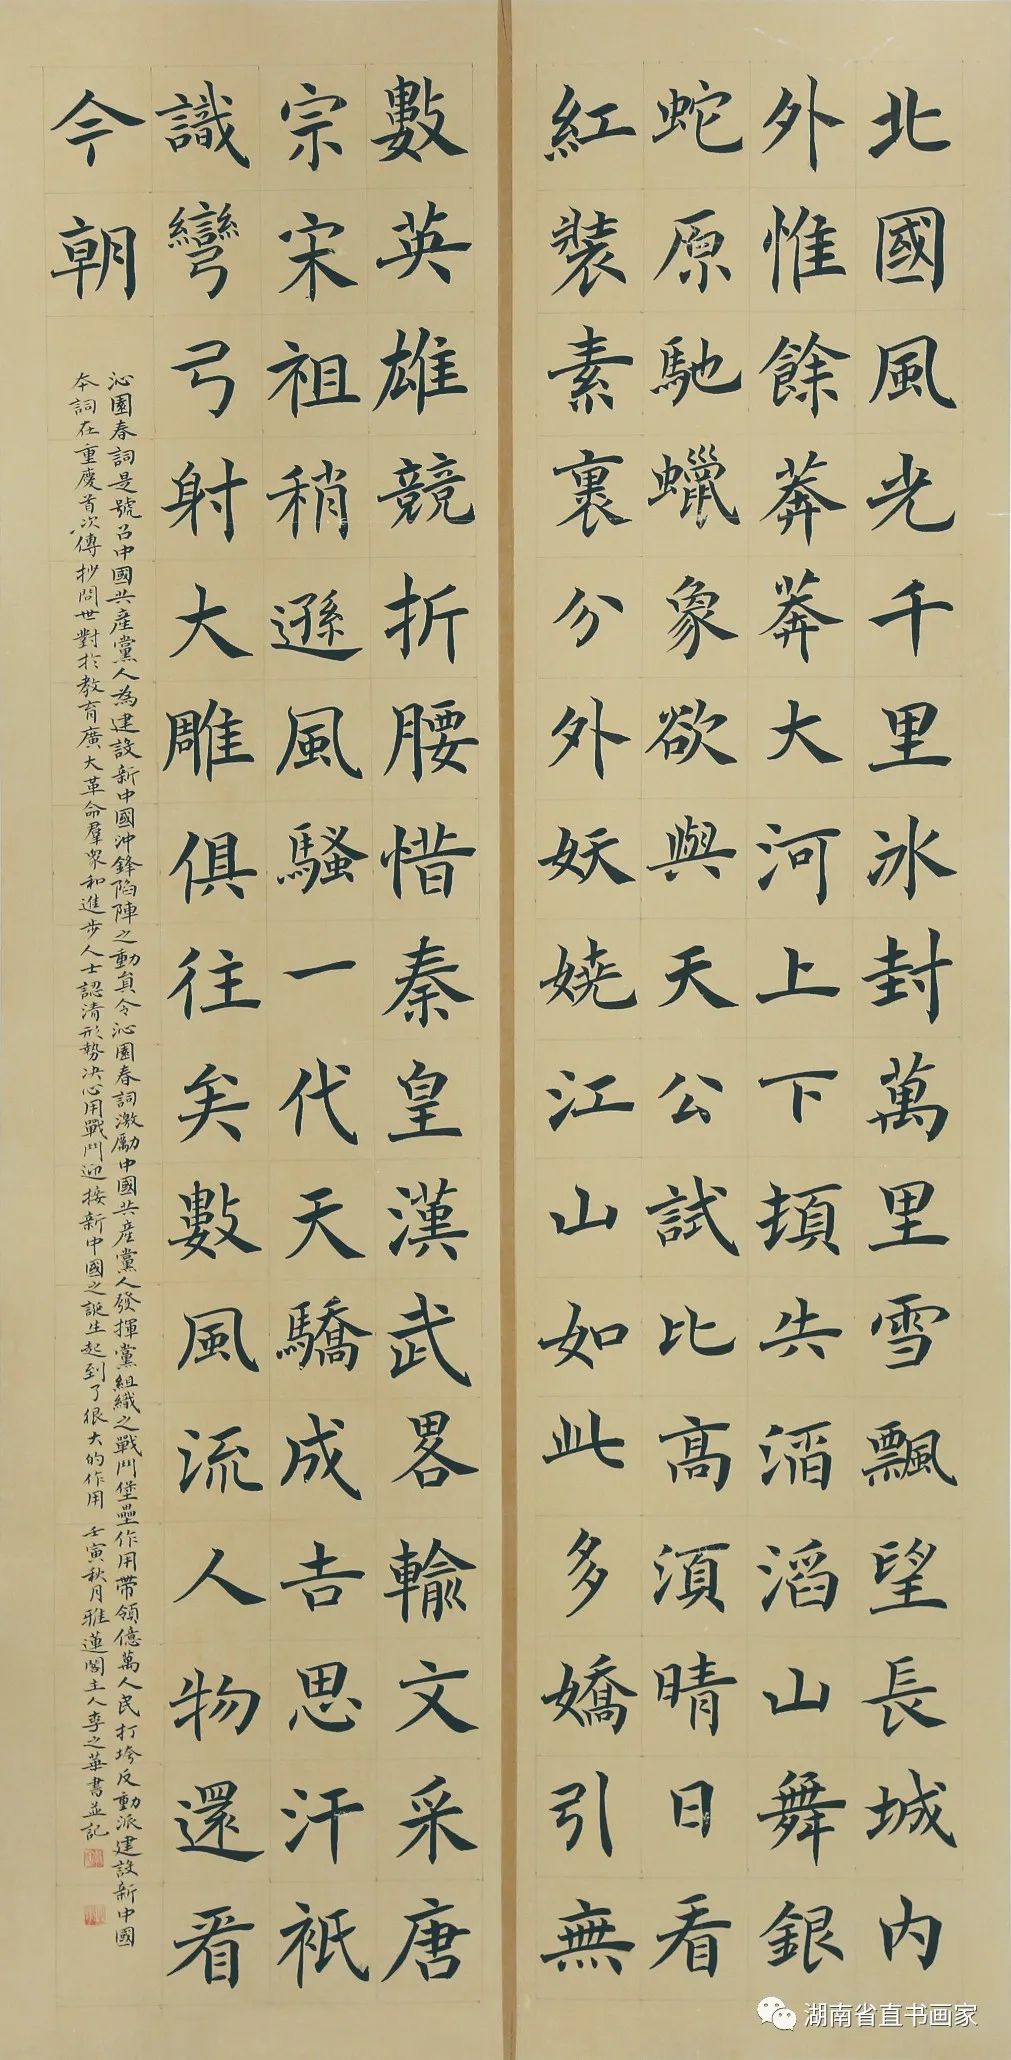 北國風光千里冰封萬里雪飄望長城内
外惟餘莽莽大河上下頓失滔滔山舞銀
蛇原馳蠟象欲與天公試比高須晴日看
紅裝素裹分外妖嬈江山如此多嬌引無
數英雄競折腰惜秦皇漢武畧輸文采唐
宗宋祖稍遜風騷一代天驕成吉思汗衹
識彎弓射大雕俱往矣數風流人物還看
今朝
沁園春詞是號召中國共産黨人為建設新中國沖鋒陷陣之動員令沁園春詞激勵中國共産黨人發揮黨組織之戰鬥堡壘作用帶領億萬人民打垮反動派建設新中國
本詞在重慶首次傳抄問世對於教育廣大革命羣衆和進步人士認清形勢决心用戰鬥迎接新中國之誕生起到了很大的作用 壬寅秋月雅蓮閣主人李之華書並記
湖南省直书画家